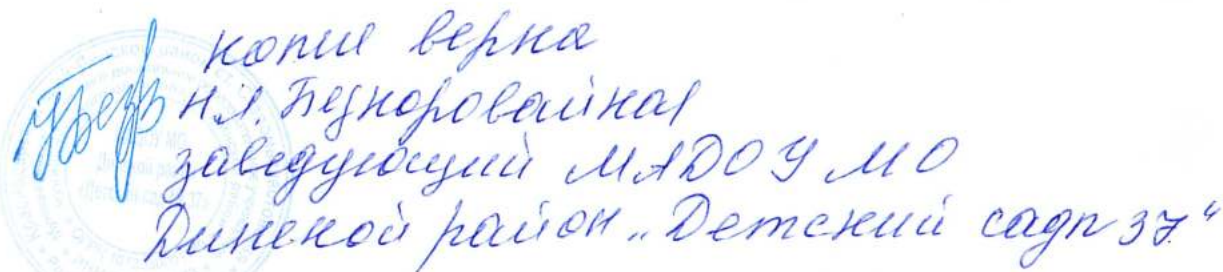 копия верна
Н.Л. Безкоровайная
заведующий МАДОУ МО
Динской район „Детский сад№37“